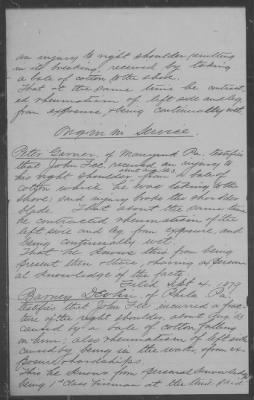 an injury to right shoulder resulting
in its breaking, received by taking
a bale of cotton to the shore.
That at the same time he contract-
ed rheumatism of left side and leg
from exposure & being continually wet.
Origin in Service
Peter Garner, of Manayunk Pa. testifies
that John Fos, received an injury to
his right shoulder from a bale of
cotton which he was taking to the
shore; said injury broke the shoulder
blade. That about the same time
he contracted rheumatism of the
left side and leg from exposure, and
being continually wet.
That he knows this from being
present then & there & having a person-
al knowledge of the facts.
Filed Sept 4, 1879
Barney of Phila Pa.
testifies that John Fos incurred a frac-
ture of the right shoulder, about Aug 63
caused by a bale of cotton falling
on him; also rheumatism of left side
caused by being in the water from ex-
posure & hardships.
This he knows from personal knowledge
being 1st Class Fireman at the time said